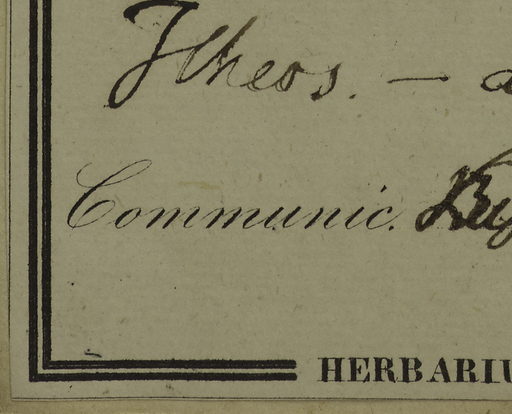 Ilheos. — a
Communic.
HERBARIU